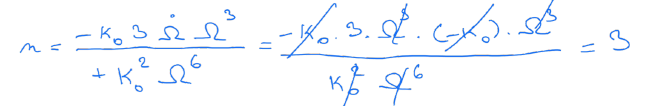 n = \frac{-K_0 3 \dot{\Omega} \Omega^3}{+K_0^2 \Omega^6} = \frac{-K_0 \cdot 3 \cdot \Omega^3 \cdot (-K_0) \cdot \Omega^3}{K_0^2 \Omega^6} = 3